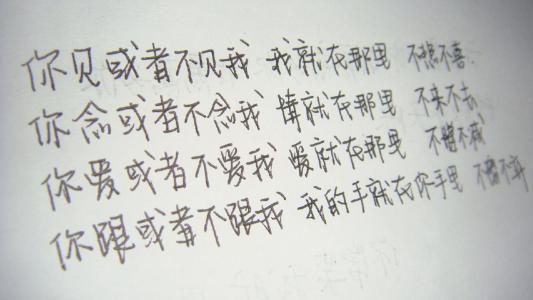 你见或者不见我 我就在那里 不悲不喜
你念或者不念我 情就在那里 不来不去
你爱或者不爱我 爱就在那里 不增不减
你跟或者不跟我 我的手就在你手里 不舍不弃